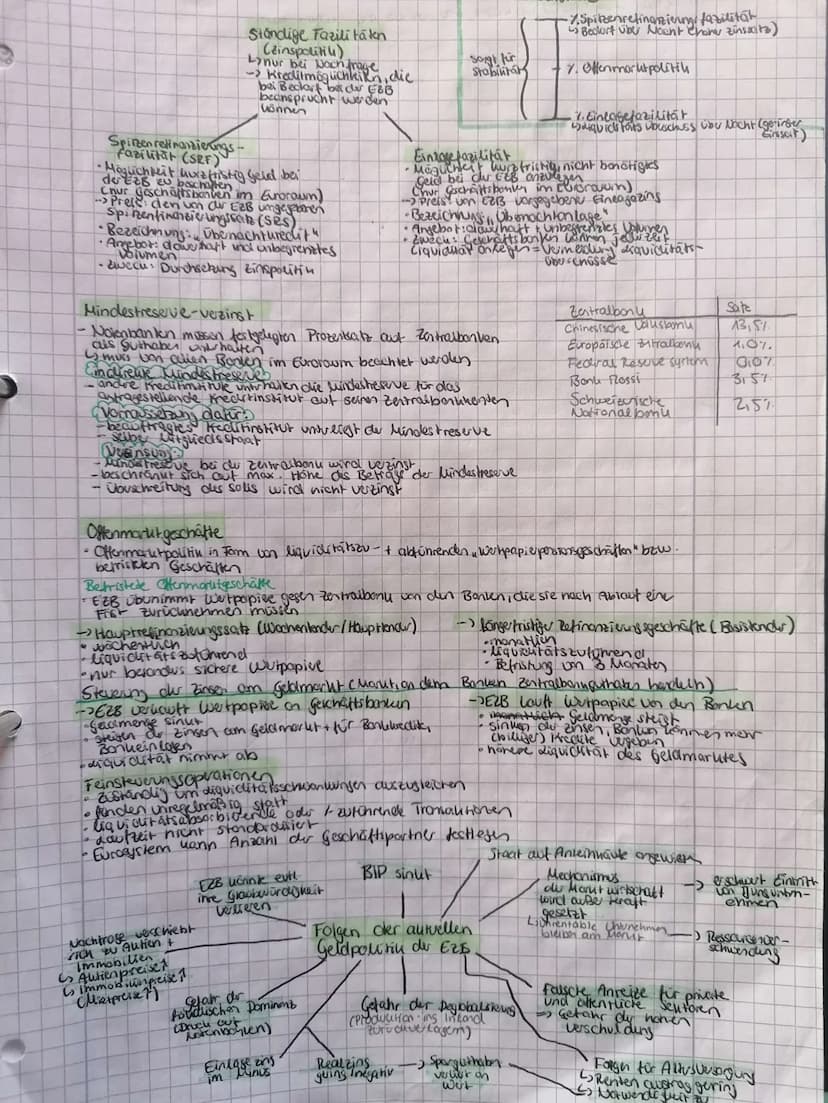 Ständige Fazilitäten
(Zinspolitik)
↳ nur bei Nachfrage
→ Kreditmöglichkeiten, die
bei Bedarf bei der EZB
beansprucht werden
können
sorgt für
Stabilität
%. Spitzenrefinanzierungsfazilität
↳ Bedarf über Nacht (hoher Zinssatz)
%. Offenmarktpolitik
%. Einlagefazilität
↳ Liquiditätsüberschuss über Nacht (geringer
Zinssatz)
Spitzenrefinanzierungs-
fazilität (SRF)
· Möglichkeit kurzfristig Geld bei
der EZB zu beschaffen
(nur Geschäftsbanken im Euroraum)
→ Preis: den von der EZB vorgegebenen
Spitzenfinanzierungssatz (SRS)
· Bezeichnung: „Übernachtkredit"
· Angebot: dauerhaft und unbegrenztes
Volumen
· Zweck: Durchsetzung Zinspolitik
Einlagefazilität
· Möglichkeit kurzfristig nicht benötigtes
Geld bei der EZB anzulegen
(nur Geschäftsbanken im Euroraum)
→ Preis: von EZB vorgegebene Einlagezins
· Bezeichnung: „Übernachtanlage"
· Angebot: dauerhaft + unbegrenztes Volumen
· Zweck: Geschäftsbanken können jederzeit
Liquidität anlegen = Vermeidung Liquiditäts-
überschüsse
Mindestreserve - verzinst
- Notenbanken müssen festgelegten Prozentsatz auf Zentralbanken
als Guthaben unterhalten
↳ muss von allen Banken im Euroraum beachtet werden
indirekte Mindestreserve
- andre Kreditinstitute unterhalten die Mindestreserve für das
antragstellende Kreditinstitut auf seinen Zentralbankkonten
Vorraussetzung dafür:
- beauftragtes Kreditinstitut unterliegt der Mindestreserve
- selber Mitgliedsstaat
Verzinsung:
- Mindestreserve bei der Zentralbank wird verzinst
- beschränkt sich auf max. Höhe des Betrags der Mindestreserve
- Überschreitung des Solls wird nicht verzinst
Zentralbank Satz
Chinesische Volksbank 13,5%
Europäische Zentralbank 1,0%
Federal Reserve System 0,0%
Bank Rossi 3,5%
Schweizerische
Nationalbank 2,5%
Offenmarktgeschäfte
· Offenmarktpolitik in Form von liquiditätszu- + abführenden „Wertpapierpensionsgeschäften" bzw.
befristeten Geschäften
Befristete Offenmarktgeschäfte
· EZB übernimmt Wertpapiere gegen Zentralbankg von den Banken, die sie nach Ablauf eine
Frist zurücknehmen müssen
→ Hauptrefinanzierungssatz (Wochentender/Haupttender)
· wöchentlich
· liquiditätszuführend
· nur besonders sichere Wertpapiere
→ Längerfristiger Refinanzierungsgeschäfte (Basistender)
· monatlich
· liquiditätszuführend
· Befristung von 3 Monaten
Steuerung der Zinsen am Geldmarkt (Markt, an dem Banken Zentralbankguthaben handeln)
→ EZB verkauft Wertpapiere an Geschäftsbanken
· Geldmenge sinkt
· steigen der Zinsen am Geldmarkt + für Bankkredite,
Bankeinlagen
· Liquidität nimmt ab
→ EZB kauft Wertpapiere von den Banken
· Geldmenge steigt
· sinken der Zinsen, Banken können mehr
(billiger) Kredite vergeben
· höhere Liquidität des Geldmarktes
Feinsteuerungsoperationen
· zuständig um Liquiditätsschwankungen auszugleichen
· finden unregelmäßig statt
· liquiditätsabsorbierende oder /-zuführende Transaktionen
· Laufzeit nicht standardisiert
· Eurosystem kann Anzahl der Geschäftspartner festlegen
Folgen der aktuellen
Geldpolitik der EZB
EZB könnte evtl.
ihre Glaubwürdigkeit
verlieren
BIP sinkt
Staat auf Anleihkäufe angewiesen
Mechanismus
der Marktwirtschaft
wird außer Kraft
gesetzt
↳ unrentable Unternehmen
bleiben am Markt
→ erschwert Eintritt
von Jungunter-
nehmen
→ Ressourcenver-
schwendung
Nachfrage verschiebt
sich zu Aktien +
Immobilien
↳ Aktienpreise↑
↳ Immobilienpreise↑
(Mietpreise↑)
Gefahr der
fiskalischen Dominanz
(Druck auf
Notenbanken)
Gefahr der Deglobalisierung
(Produktion ins Inland
zurückverlagern)
Falsche Anreize für private
und öffentliche Sektoren
→ Gefahr der hohen
Verschuldung
Einlagezins
im Minus
Realzins
ging negativ
→ Sparguthaben
verliert an
Wert
Folgen für Altersversorgung
↳ Renten gering
↳ Notwendigkeit zu